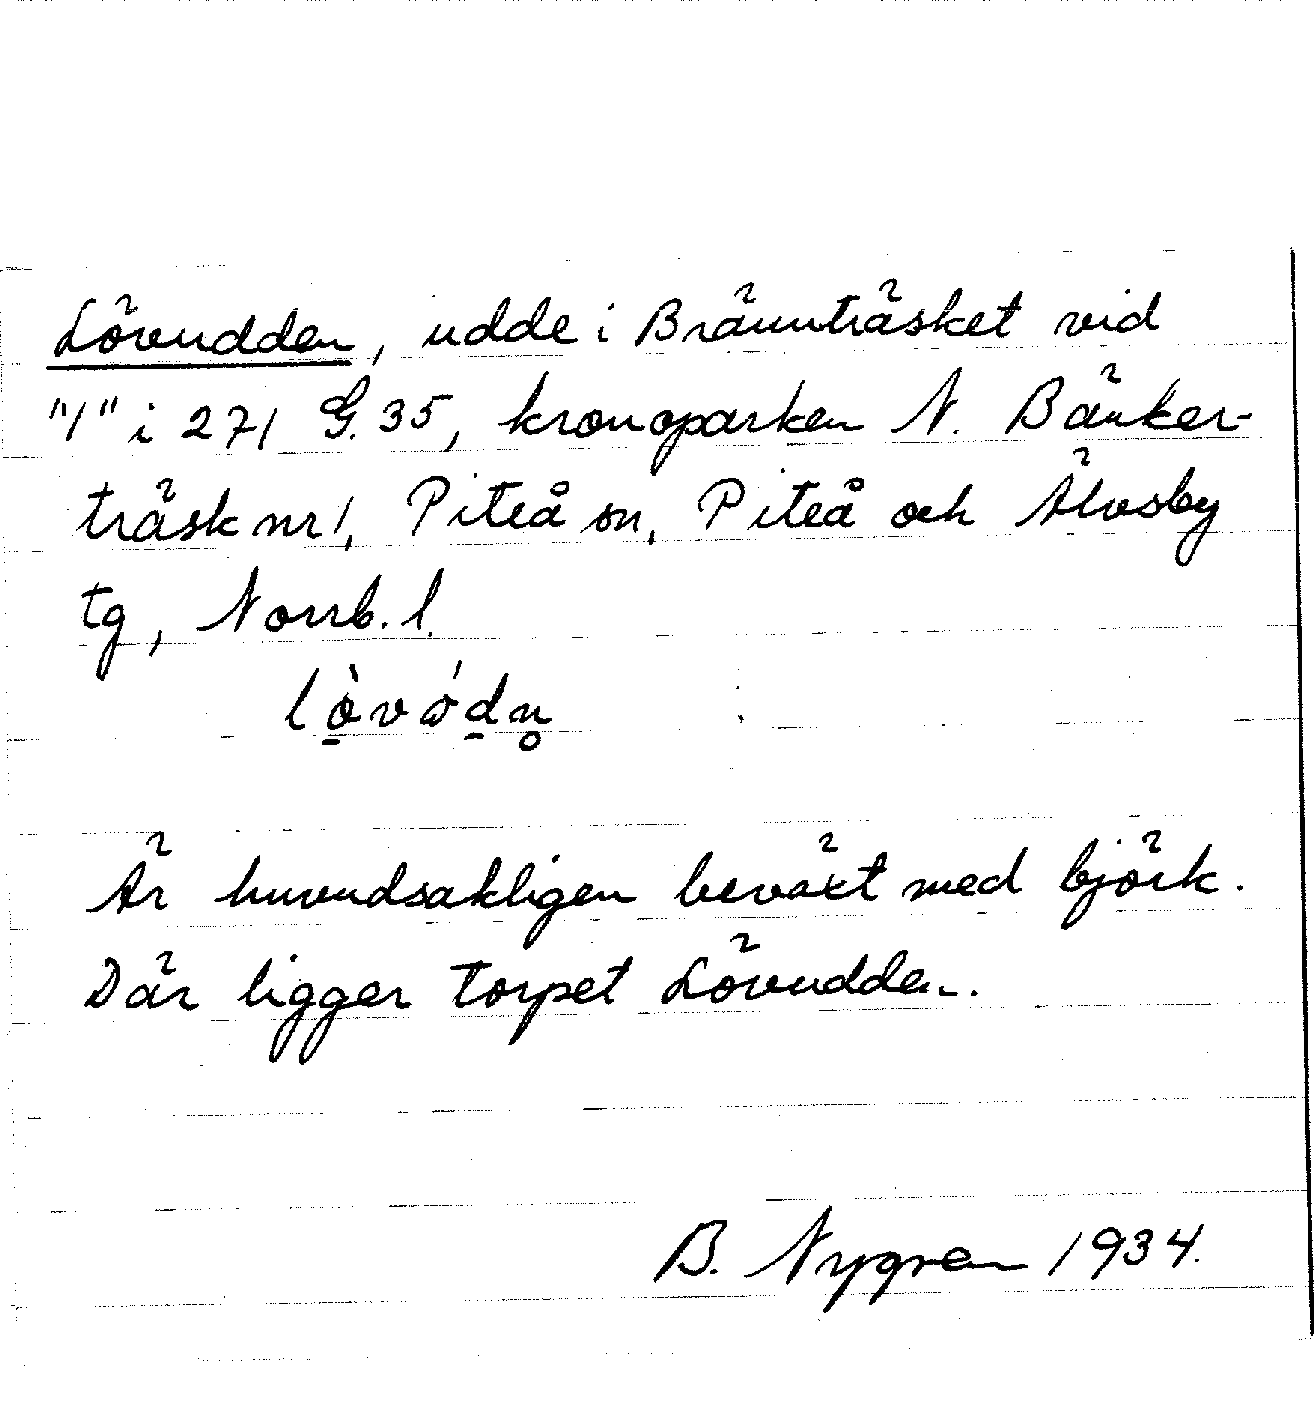 Lövudden, udde i Brännträsket vid
"1" i 271 G. 35, kronoparken N. Bänker-
träsk nr 1, Piteå sn, Piteå och Älvsby
tg, Norrb. l.
Är huvudsakligen beväxt med björk.
Där ligger torpet Lövudden.
B. Nygren 1934.